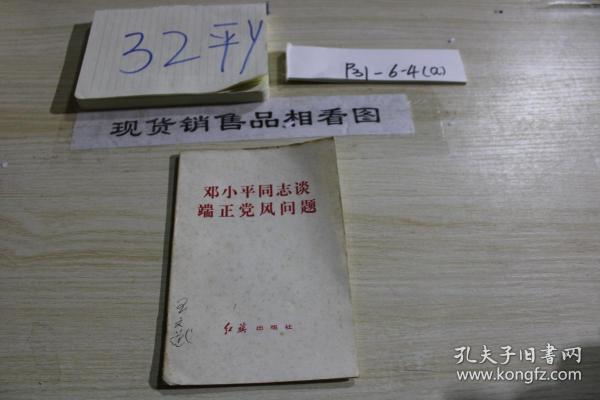 32平y
P31-6-4(a)
现货销售品相看图
邓小平同志谈
端正党风问题
红旗 出版社
孔夫子旧书网
www.kongfz.com